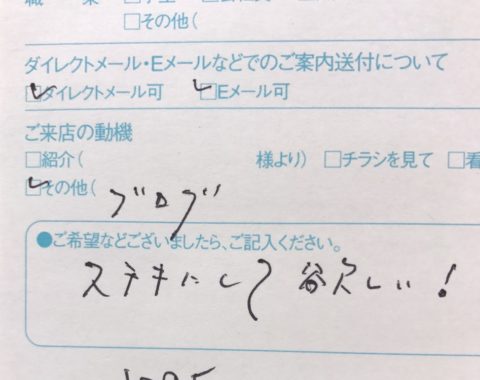 □その他(
ダイレクトメール・Eメールなどでのご案内送付について
□ダイレクトメール可 □Eメール可
ご来店の動機
□紹介( 様より) □チラシを見て □看
□その他( ブログ
●ご希望などございましたら、ご記入ください。
ステキにして欲しい!